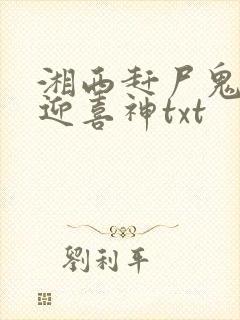 湘西赶尸鬼
迎喜神txt
劉利平